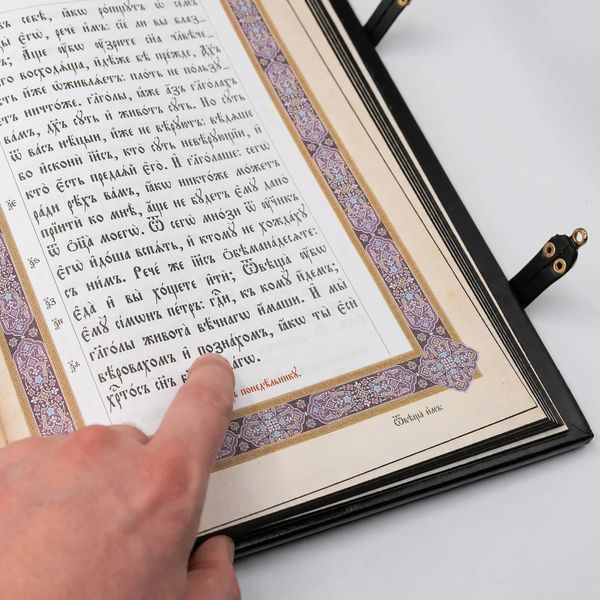 себѣ̀, ꙗ҆́кѡ ро́пщꙋтъ ѡ҆
є҆гѡ̀, речѐ и҆̀мъ: сїе́ ли вы̀
А҆́ще ᲂу҆̀бо ᲂу҆́зрите сн҃а
восходѧ́ща, и҆дѣ́же бѣ̀ пре́жде, Дх҃ъ
и҆́же ѡ҆живлѧ́етъ: пло́ть не по́льзꙋ
ничто́же. гл҃го́лы, ꙗ҆̀же а҆́зъ гл҃го́лахъ
ва́мъ, дх҃ъ сꙋ́ть и҆ живо́тъ сꙋ́ть. Но сꙋ́ть
ѿ ва́съ нѣ́цыи, и҆̀же не вѣ́рꙋютъ: вѣ́дѧше
бо и҆сконѝ і҆и҃съ, кто̀ сꙋ́ть невѣ́рꙋющїи, и҆
кто̀ є҆́сть предаѧ́й є҆го̀. И҆ гл҃го́лаше: сегѡ̀
ра́ди рѣ́хъ ва́мъ, ꙗ҆́кѡ никто́же мо́жетъ
прїитѝ ко мнѣ̀, а҆́ще не бꙋ́детъ є҆мꙋ̀ дано̀
ѿ ѻ҆ц҃а̀ моегѡ̀. Ѿ сегѡ̀ мно́зи ѿ ᲂу҆чн҃къ
є҆гѡ̀ и҆до́ша вспѧ́ть, и҆ ктомꙋ̀ не хожда́хꙋ
съ ни́мъ. Рече́ же і҆и҃съ ѻ҆бѣмана́десѧте:
є҆да̀ и҆ вы̀ хо́щете и҆тѝ; Ѿвѣща̀ ᲂу҆̀бо
є҆мꙋ̀ сі́мѡнъ пе́тръ: гдⷭ҇и, къ комꙋ̀ и҆́демъ;
гл҃го́лы живота̀ вѣ́чнагѡ и҆́маши. И҆ мы̀
вѣ́ровахомъ и҆ позна́хомъ, ꙗ҆́кѡ ты̀ є҆сѝ
хрⷭ҇то́съ сн҃ъ
понедѣ́льникꙋ.
Ѿвѣща̀ и҆̀мъ: